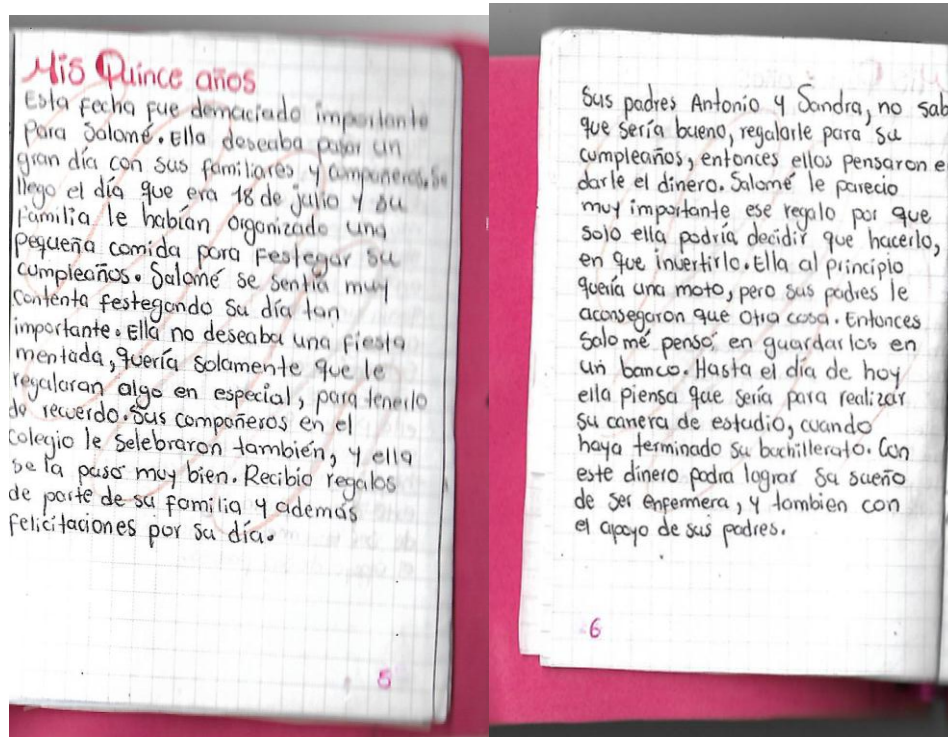 Mis Quince años
Esta fecha fue demaciado importante
para Salomé. Ella deseaba pasar un
gran día con sus familiares y compañeros. Se
llego el día que era 18 de julio y su
familia le habían organizado una
pequeña comida para festegar su
cumpleaños. Salomé se sentía muy
contenta festegando su día tan
importante. Ella no deseaba una fiesta
mentada, quería solamente que le
regalaran algo en especial, para tenerlo
de recuerdo. Sus compañeros en el
colegio le selebraron también, y ella
se la paso muy bien. Recibio regalos
de parte de su familia y además
felicitaciones por su día.
5
Sus padres Antonio y Sandra, no sab
que sería bueno, regalarle para su
cumpleaños, entonces ellos pensaron e
darle el dinero. Salomé le parecio
muy importante ese regalo por que
solo ella podría decidir que hacerlo,
en que invertirlo. Ella al principio
quería una moto, pero sus padres le
aconsegaron que otra cosa. Entonces
Salomé penso, en guardarlos en
un banco. Hasta el día de hoy
ella piensa que sería para realizar
su carrera de estudio, cuando
haya terminado su bachillerato. Con
este dinero podra lograr su sueño
de ser enfermera, y tambien con
el apoyo de sus padres.
6